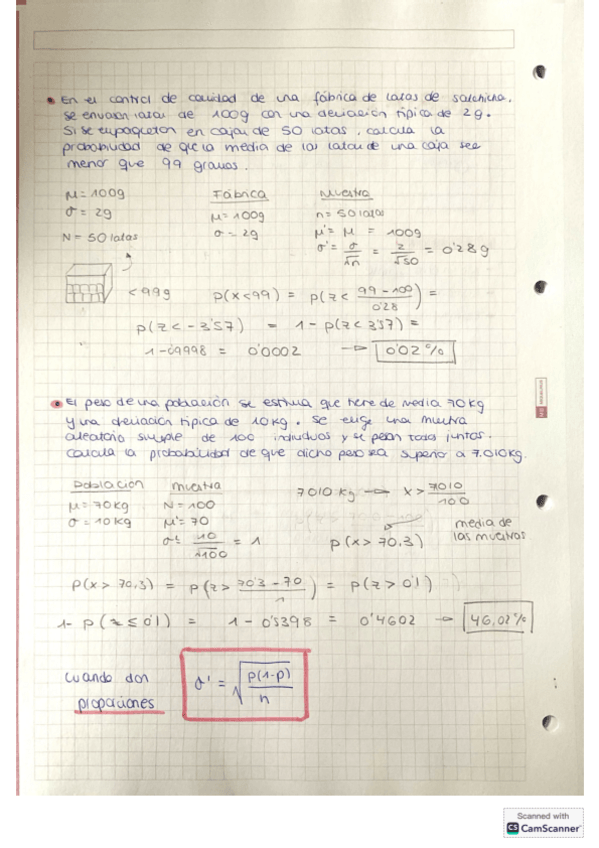 • En el control de calidad de una fábrica de latas de salchicha,
se envasan latas de 100g con una desviación típica de 2g.
Si se empaquetan en cajas de 50 latas, calcula la
probabilidad de que la media de las latas de una caja sea
menor que 99 gramos.
μ = 100g Fábrica Muestra
σ = 2g μ = 100g n = 50 latas
N = 50 latas σ = 2g μ' = μ = 100g
σ' = σ/√n = 2/√50 = 0'28g
< 99g p(x<99) = p(z < 99 - 100/0'28) =
p(z < -3'57) = 1 - p(z < 3'57) =
1 - 0'9998 = 0'0002 → 0'02%
• El peso de una población se estima que tiene de media 70kg
y una desviación típica de 10kg. Se elige una muestra
aleatoria simple de 100 individuos y se pesan todos juntos.
Calcula la probabilidad de que dicho peso sea superior a 7.010kg.
Población Muestra 7010 kg → x > 7010/100
μ = 70kg N = 100
σ = 10kg μ' = 70 media de
σ' = 10/√100 = 1 p(x > 70,3) las muestras
p(x > 70,3) = p(z > 70'3 - 70/1) = p(z > 0'1)
1 - p(z ≤ 0'1) = 1 - 0'5398 = 0'4602 → 46,02%
Cuando don
proporciones σ' = √p(1-p)/n
Scanned with
CS CamScanner